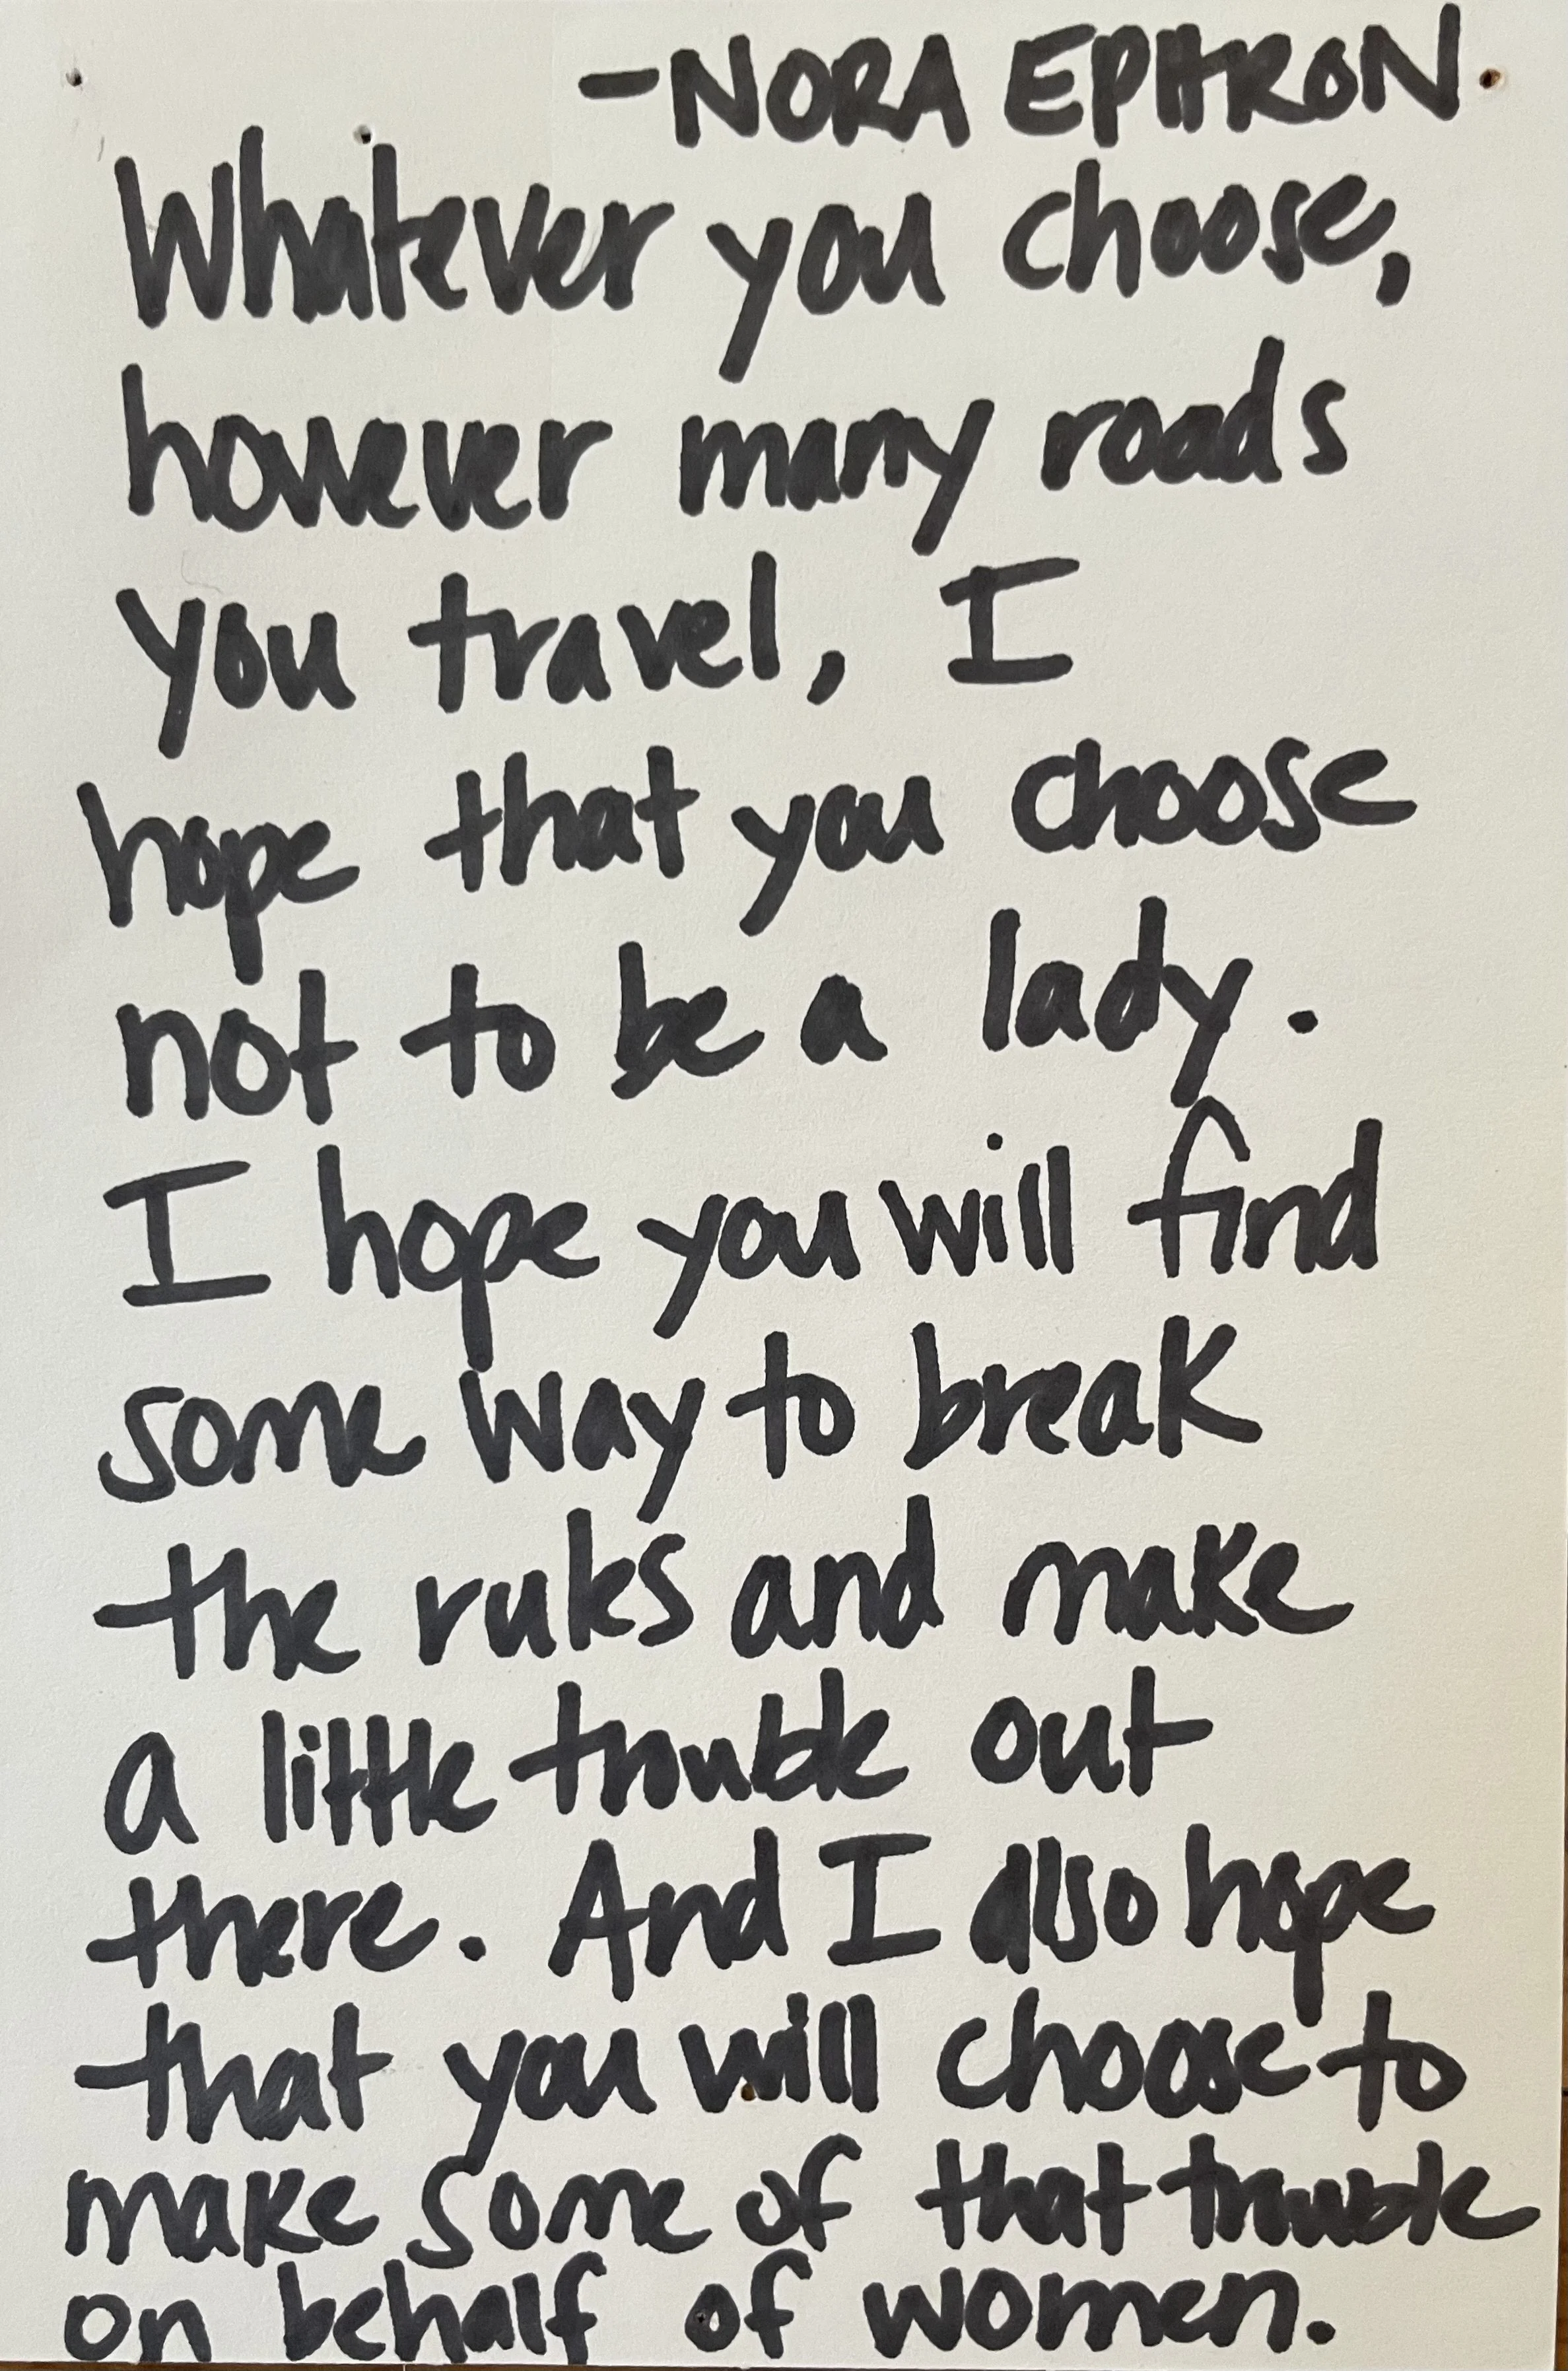 -NORA EPHRON.
Whatever you choose,
however many roads
you travel, I
hope that you choose
not to be a lady.
I hope you will find
some way to break
the rules and make
a little trouble out
there. And I also hope
that you will choose to
make some of that trouble
on behalf of women.